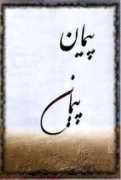 پیمان
پیمان